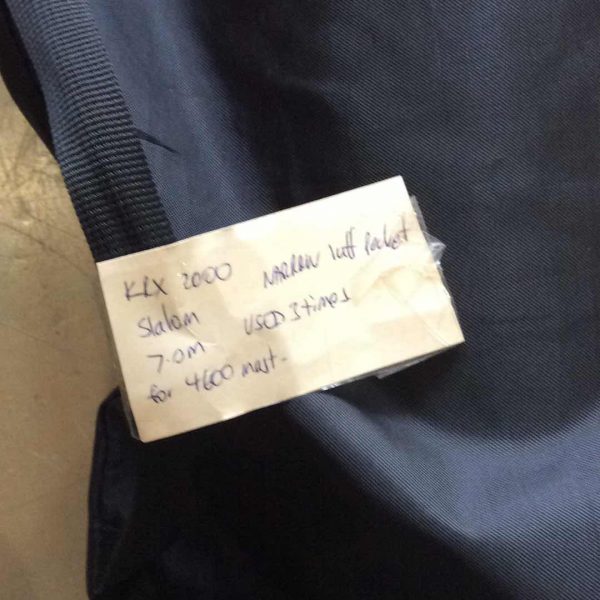 KLX 2000
Slalom
7.0m
for 4600 mast-
NARROW luff Pocket
USED 3 times